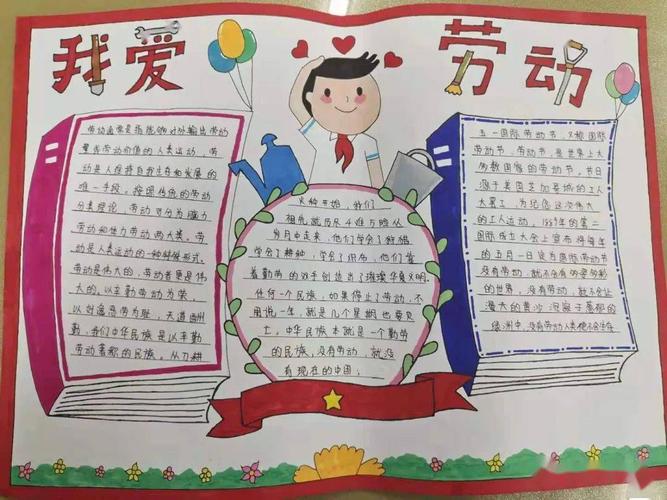 我爱
劳动
劳动通常是指能够对外输出劳动
量或劳动价值的人类运动，劳
动是人维持自我生存和发展的
唯一手段。按照传统的劳动
分类理论，劳动可分为脑力
劳动和体力劳动两大类。劳
动是人类运动的一种特殊形式。
劳动是伟大的，劳动者更是伟
大的。以辛勤劳动为荣，
以好逸恶劳为耻，天道酬
勤，我们中华民族是以辛勤
劳动著称的民族。从刀耕
火种开始，我们
祖先就历尽艰难与险从
岁月中走来，他们学会了狩猎
学会了耕种，学会了织布，他们靠
着勤劳的双手创造出了璀璨华夏文明。
任何一个民族，如果停止了劳动，不
用说一年，就是几个星期也要灭
亡。中华民族本就是一个勤劳
的民族，没有劳动，就没
有现在的中国；
五一国际劳动节，又称国际
劳动节，劳动节，是世界上大
多数国家的劳动节。节日
源于美国芝加哥城的工人
大罢工，为纪念这次伟大
的工人运动，1889年的第二
国际成立大会上宣布将每年
的五月一日设为国际劳动节
没有劳动，就不会有多姿多彩
的世界，没有劳动，就不会让
漫大的黄沙
绿洲中，没有劳动人类便不会